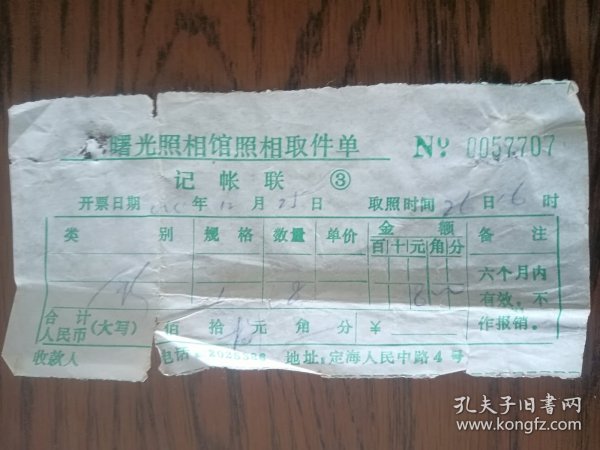 曙光照相馆照相取件单 № 0057707
记帐联 ③
开票日期 年 12 月 25 日 取照时间 26 日 16 时
类别 规格 数量 单价 金额 备注
百 十 元 角 分
六个月内
有效。不
作报销。
合计
人民币 (大写) 佰 拾 元 角 分 ¥
收款人 电话: 地址:定海人民中路4号
孔夫子旧书网
www.kongfz.com